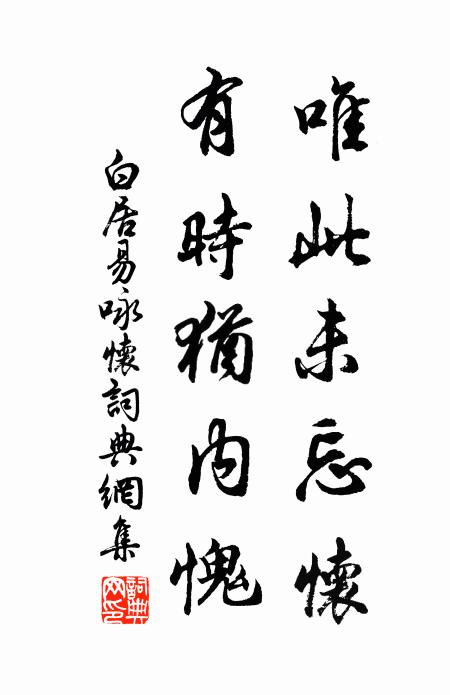 唯此未忘懷
有時猶内愧
白居易咏懷詞典網集
詞典網印